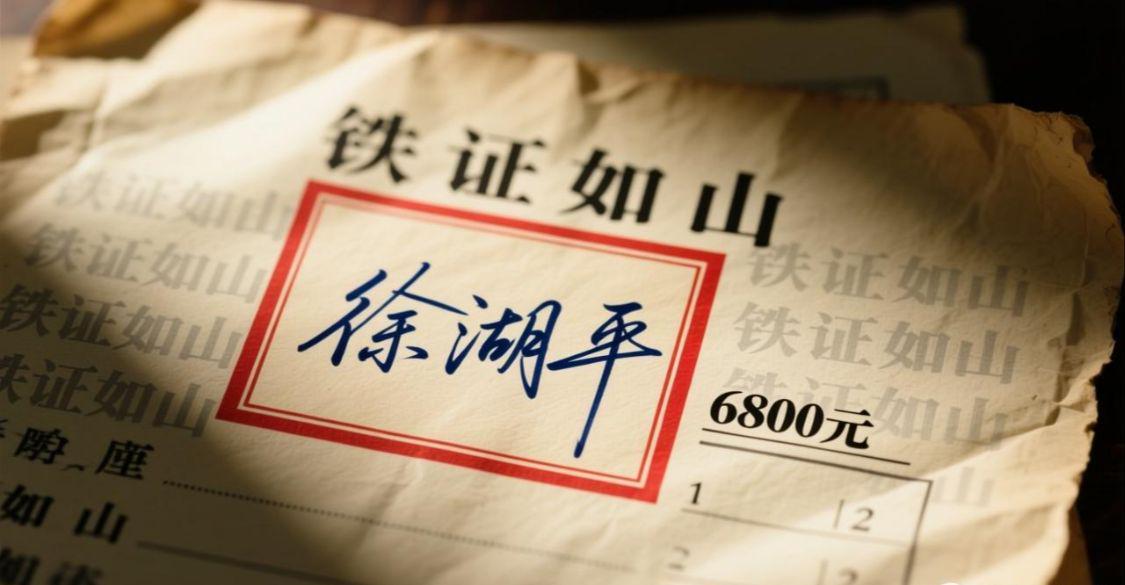 铁证如山
铁证如山
铁证如山
铁证如山
铁证如山
徐湖平
铁证如山
铁证如山
铁证如山
6800元
座
1 2
如山
2 2
如